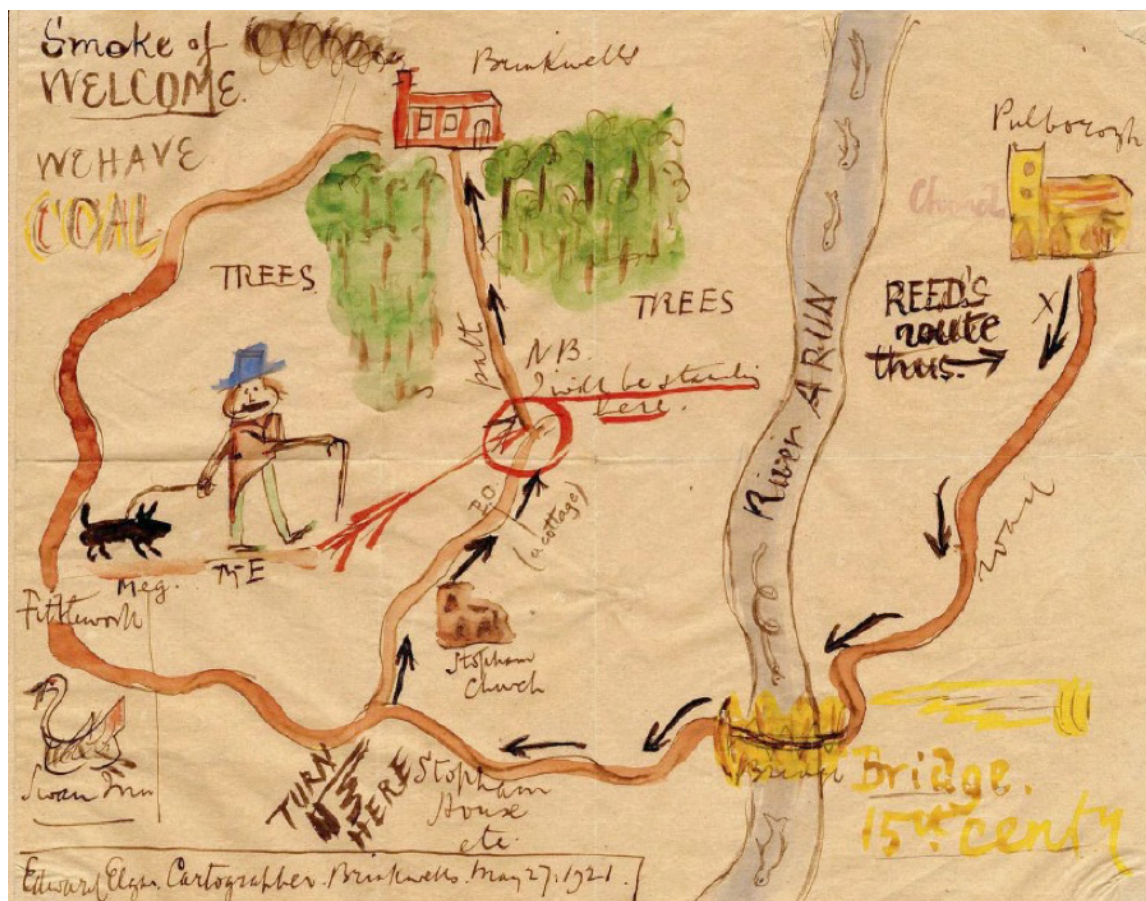 Smoke of
WELCOME.
Brinkwells
Pulborough
WE HAVE
COAL
Church
TREES
TREES
REED'S
route
thus.
X
path
N.B.
I will be standing
here.
River ARUN
P.O.
(a cottage)
way
Meg.
ME
Fittleworth
Stopham
Church
Swan Inn
TURN
HERE
Stopham
House
etc.
Bridge
Bridge.
15th centy
Edward Elgar. Cartographer. Brinkwells. May 27. 1921.